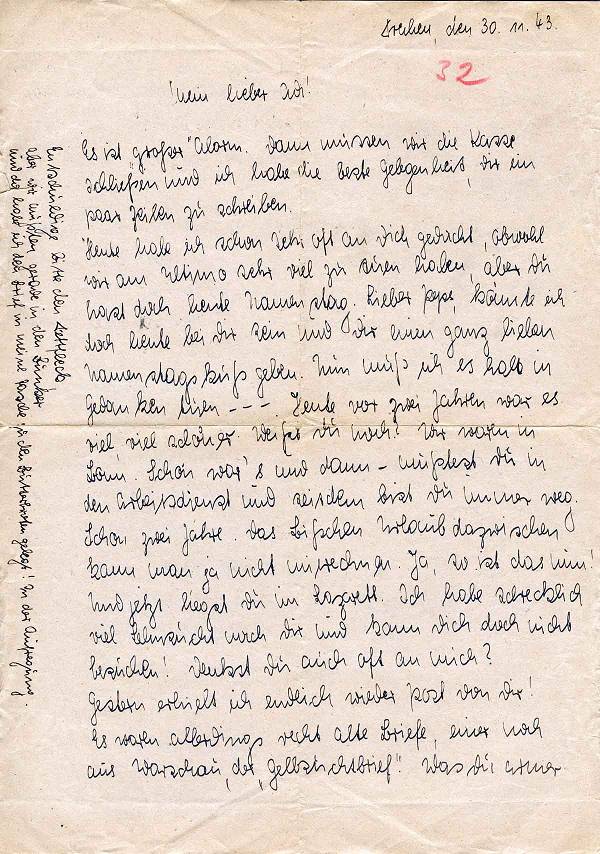 den 30. 11. 43.
32
Mein lieber
Es ist "großer" Alarm. Dann müssen wir die Kasse
schließen und ich habe die beste Gelegenheit, dir ein
paar Zeilen zu schreiben.
Heute habe ich schon sehr oft an Dich gedacht, obwohl
wir am Ultimo sehr viel zu tuen haben, aber du
hast doch heute Namenstag. Lieber Peps, könnte ich
doch heute bei dir sein und dir einen ganz lieben
Namenstagskuß geben. Nun muß ich es halt in
Gedanken tuen - - - Heute vor zwei Jahren war es
viel viel schöner. Weißt du noch? Wir waren in
Bonn. Schön war's und dann - mußtest du in
den Arbeitsdienst und seitdem bist du immer weg.
Schon zwei Jahre. Das bißchen Urlaub dazwischen
kann man ja nicht mitrechnen. Ja, so ist das nun!
Und jetzt liegst du im Lazarett. Ich habe schrecklich
viel Sehnsucht nach dir und kann dich doch nicht
besuchen! Denkst du auch oft an mich?
Gestern erhielt ich endlich wieder Post von dir!
Es waren allerdings recht alte Briefe, einer noch
aus Warschau, der "Gelbsuchtsbrief". Was du armer
Entschuldige bitte den Fettfleck,
aber wir mußten gerade in den Bunker
und da habe ich den Brief in meine Tasche zu den Butterbroten gelegt! In der Aufregung.